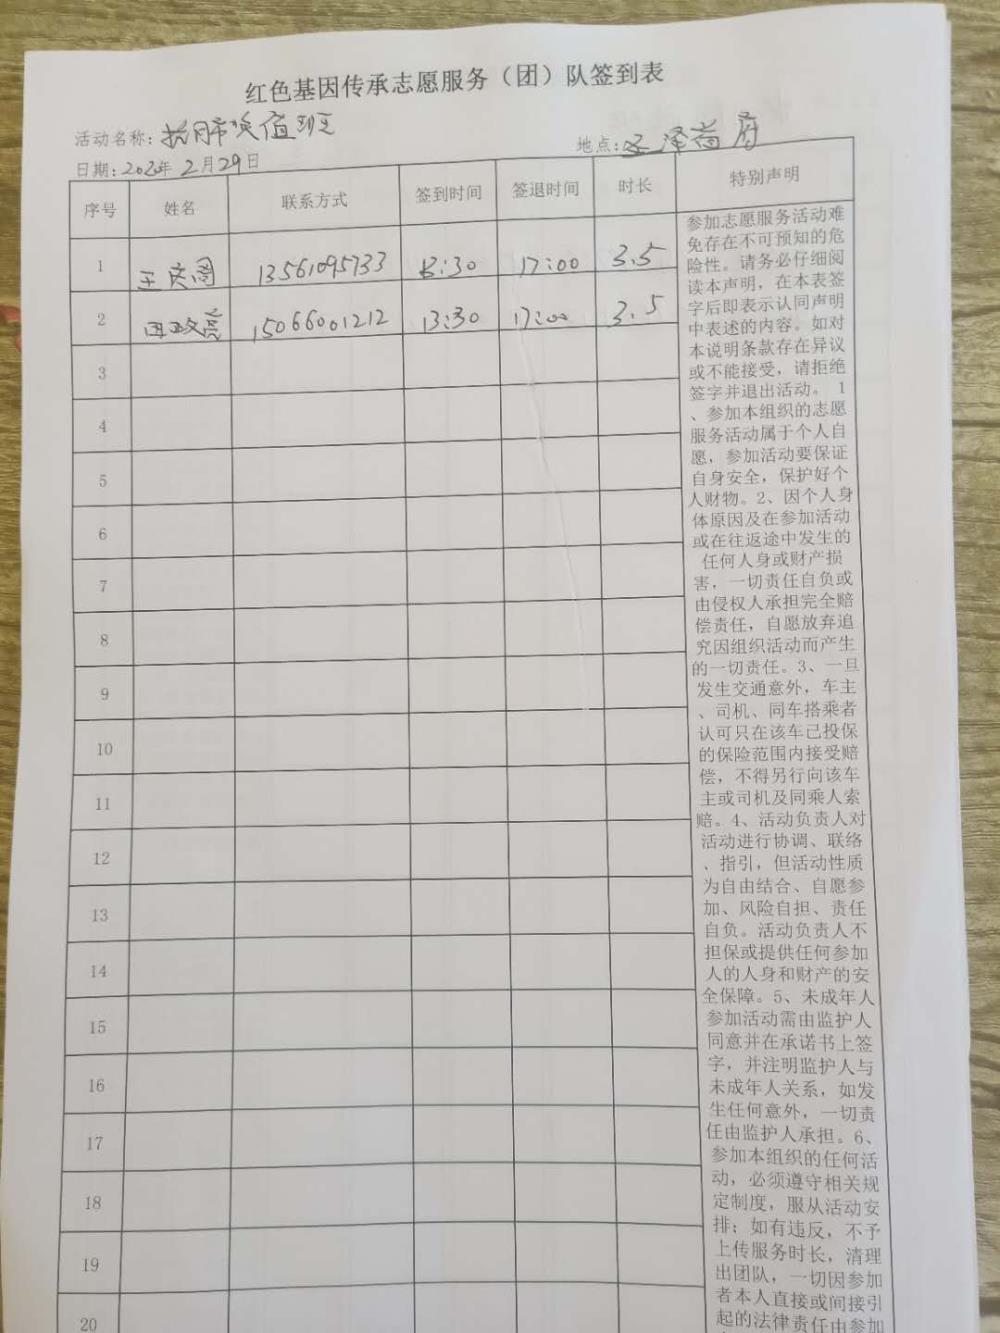 红色基因传承志愿服务（团）队签到表
活动名称：值班
地点：泽 府
日期：2020年2月29日
序号 姓名 联系方式 签到时间 签退时间 时长 特别声明
1 王庆 13561095733 13:30 17:00 3.5
2 田政亮 15066001212 13:30 17:00 3.5
3
4
5
6
7
8
9
10
11
12
13
14
15
16
17
18
19
20
参加志愿服务活动难
免存在不可预知的危
险性。请务必仔细阅
读本声明，在本表签
字后即表示认同声明
中表述的内容。如对
本说明条款存在异议
或不能接受，请拒绝
签字并退出活动。 1
、参加本组织的志愿
服务活动属于个人自
愿，参加活动要保证
自身安全，保护好个
人财物。2、因个人身
体原因及在参加活动
或在往返途中发生的
任何人身或财产损
害，一切责任自负或
由侵权人承担完全赔
偿责任，自愿放弃追
究因组织活动而产生
的一切责任。3、一旦
发生交通意外，车主
、司机、同车搭乘者
认可只在该车已投保
的保险范围内接受赔
偿，不得另行向该车
主或司机及同乘人索
赔。4、活动负责人对
活动进行协调、联络
、指引，但活动性质
为自由结合、自愿参
加、风险自担、责任
自负。活动负责人不
担保或提供任何参加
人的人身和财产的安
全保障。5、未成年人
参加活动需由监护人
同意并在承诺书上签
字，并注明监护人与
未成年人关系，如发
生任何意外，一切责
任由监护人承担。6、
参加本组织的任何活
动，必须遵守相关规
定制度，服从活动安
排；如有违反，不予
上传服务时长，清理
出团队，一切因参加
者本人直接或间接引
起的法律责任由参加